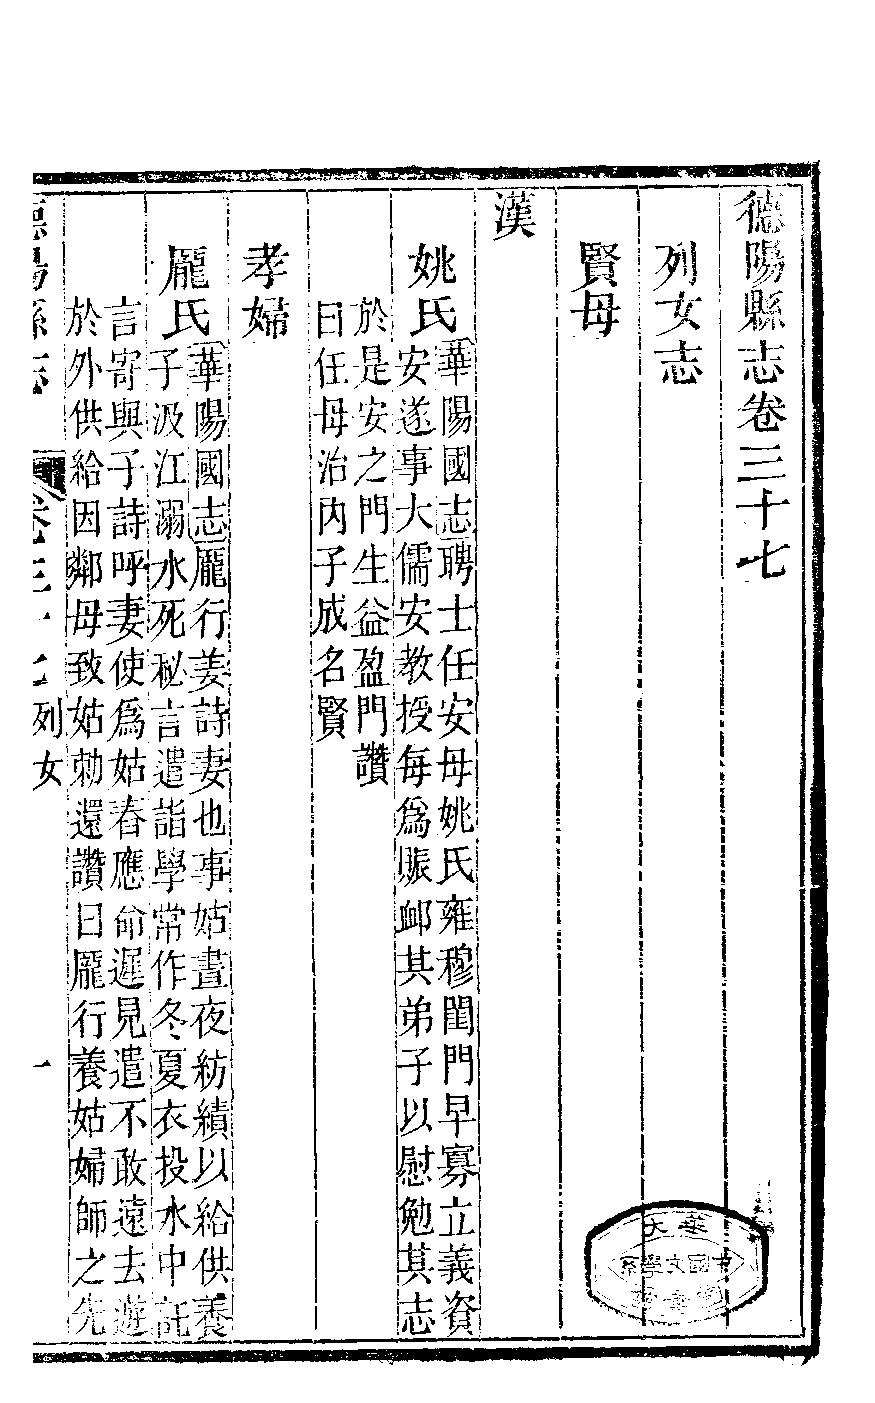 德陽縣志卷三十七
列女志
賢母
漢
姚氏
華陽國志聘士任安母姚氏雍穆閨門早寡立義資
安遂事大儒安教授每爲賑卹其弟子以慰勉其志
於是安之門生益盈門讚
曰任母治內子成名賢
孝婦
龐氏
華陽國志龐行姜詩妻也事姑晝夜紡績以給供養
子汲江溺水死秘言遣詣學常作冬夏衣投水中託
言寄與子詩呼妻使爲姑舂應命遲見遣不敢遠去遊
於外供給因鄰母致姑勑還讚曰龐行養姑婦師之先
德陽縣志
卷三十七列女
一